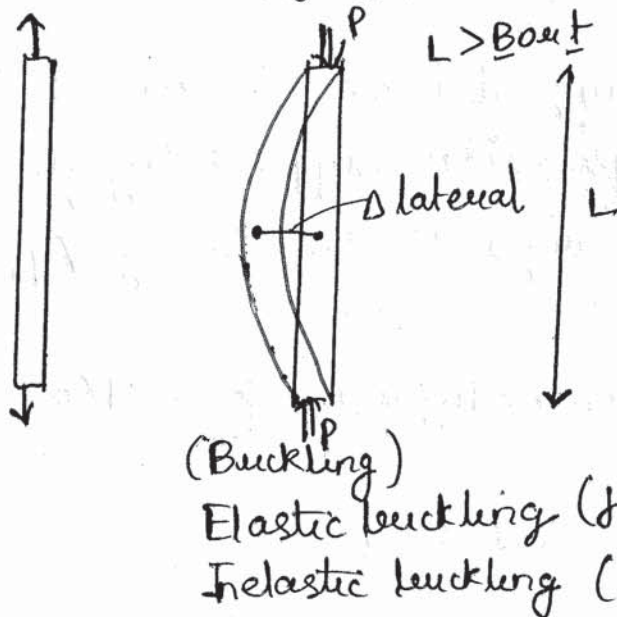 P
L > B or t
Δ lateral
L
P
(Buckling)
Elastic buckling (
Inelastic buckling (